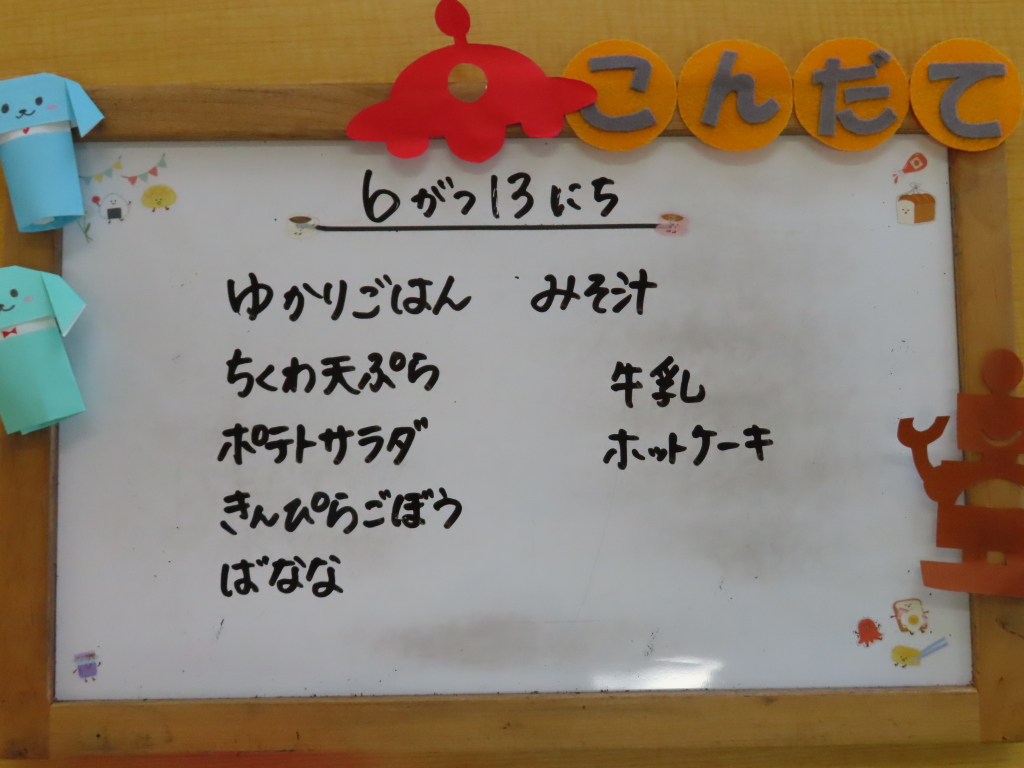 こんだて
6がつ13にち
ゆかりごはん みそ汁
ちくわ天ぷら
ポテトサラダ
きんぴらごぼう
ばなな
牛乳
ホットケーキ